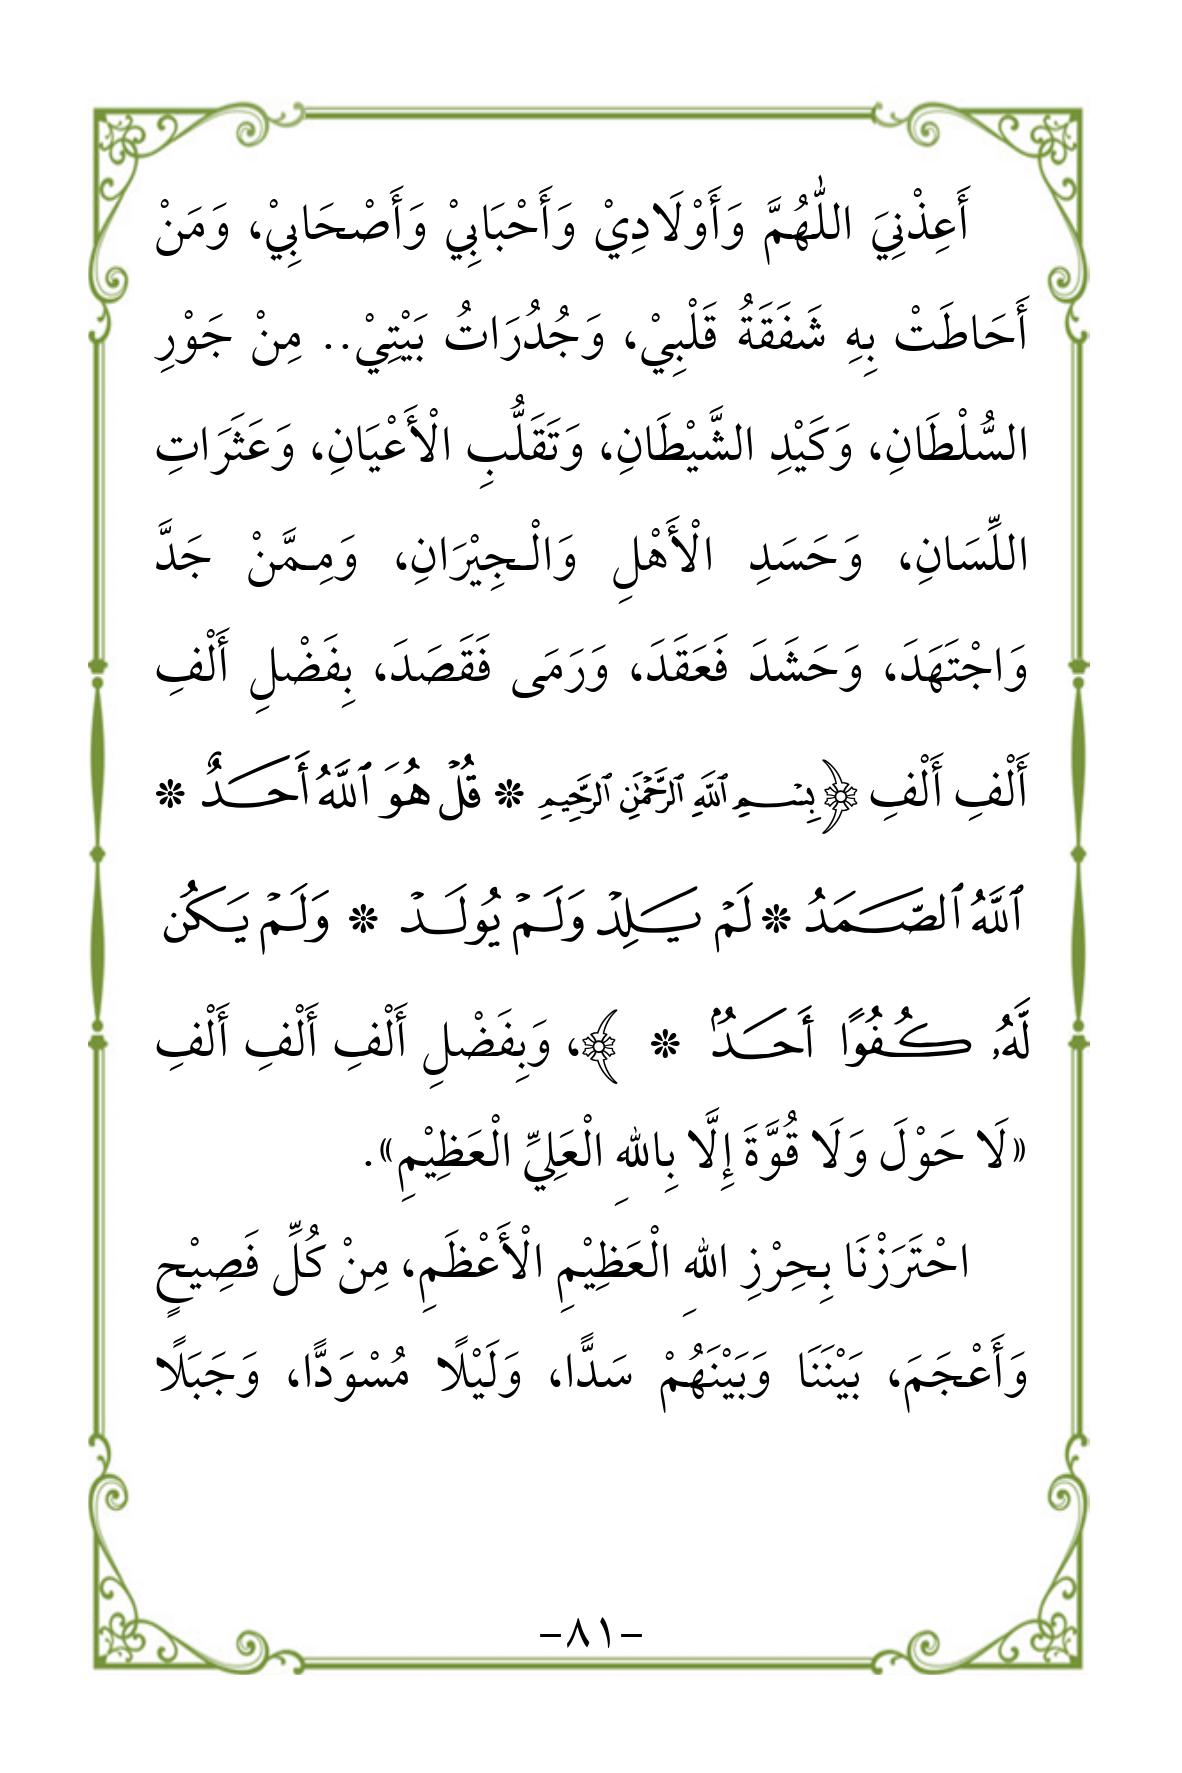 أَعِذْنِيَ اللّٰهُمَّ وَأَوْلَادِيْ وَأَحْبَابِيْ وَأَصْحَابِيْ، وَمَنْ
أَحَاطَتْ بِهِ شَفَقَةُ قَلْبِيْ، وَجُدُرَاتُ بَيْتِيْ.. مِنْ جَوْرِ
السُّلْطَانِ، وَكَيْدِ الشَّيْطَانِ، وَتَقَلُّبِ الْأَعْيَانِ، وَعَثَرَاتِ
اللِّسَانِ، وَحَسَدِ الْأَهْلِ وَالْجِيْرَانِ، وَمِمَّنْ جَدَّ
وَاجْتَهَدَ، وَحَشَدَ فَعَقَدَ، وَرَمَى فَقَصَدَ، بِفَضْلِ أَلْفِ
أَلْفِ أَلْفِ ﴿بِسْمِ ٱللَّهِ ٱلرَّحْمَٰنِ ٱلرَّحِيمِ * قُلْ هُوَ ٱللَّهُ أَحَدٌ *
ٱللَّهُ ٱلصَّمَدُ * لَمْ يَلِدْ وَلَمْ يُولَدْ * وَلَمْ يَكُن
لَّهُۥ كُفُوًا أَحَدٌۢ * ﴾، وَبِفَضْلِ أَلْفِ أَلْفِ أَلْفِ
«لَا حَوْلَ وَلَا قُوَّةَ إِلَّا بِاللهِ الْعَلِيِّ الْعَظِيْمِ».
احْتَرَزْنَا بِحِرْزِ اللهِ الْعَظِيْمِ الْأَعْظَمِ، مِنْ كُلِّ فَصِيْحٍ
وَأَعْجَمَ، بَيْنَنَا وَبَيْنَهُمْ سَدًّا، وَلَيْلًا مُسْوَدًّا، وَجَبَلًا
-٨١-